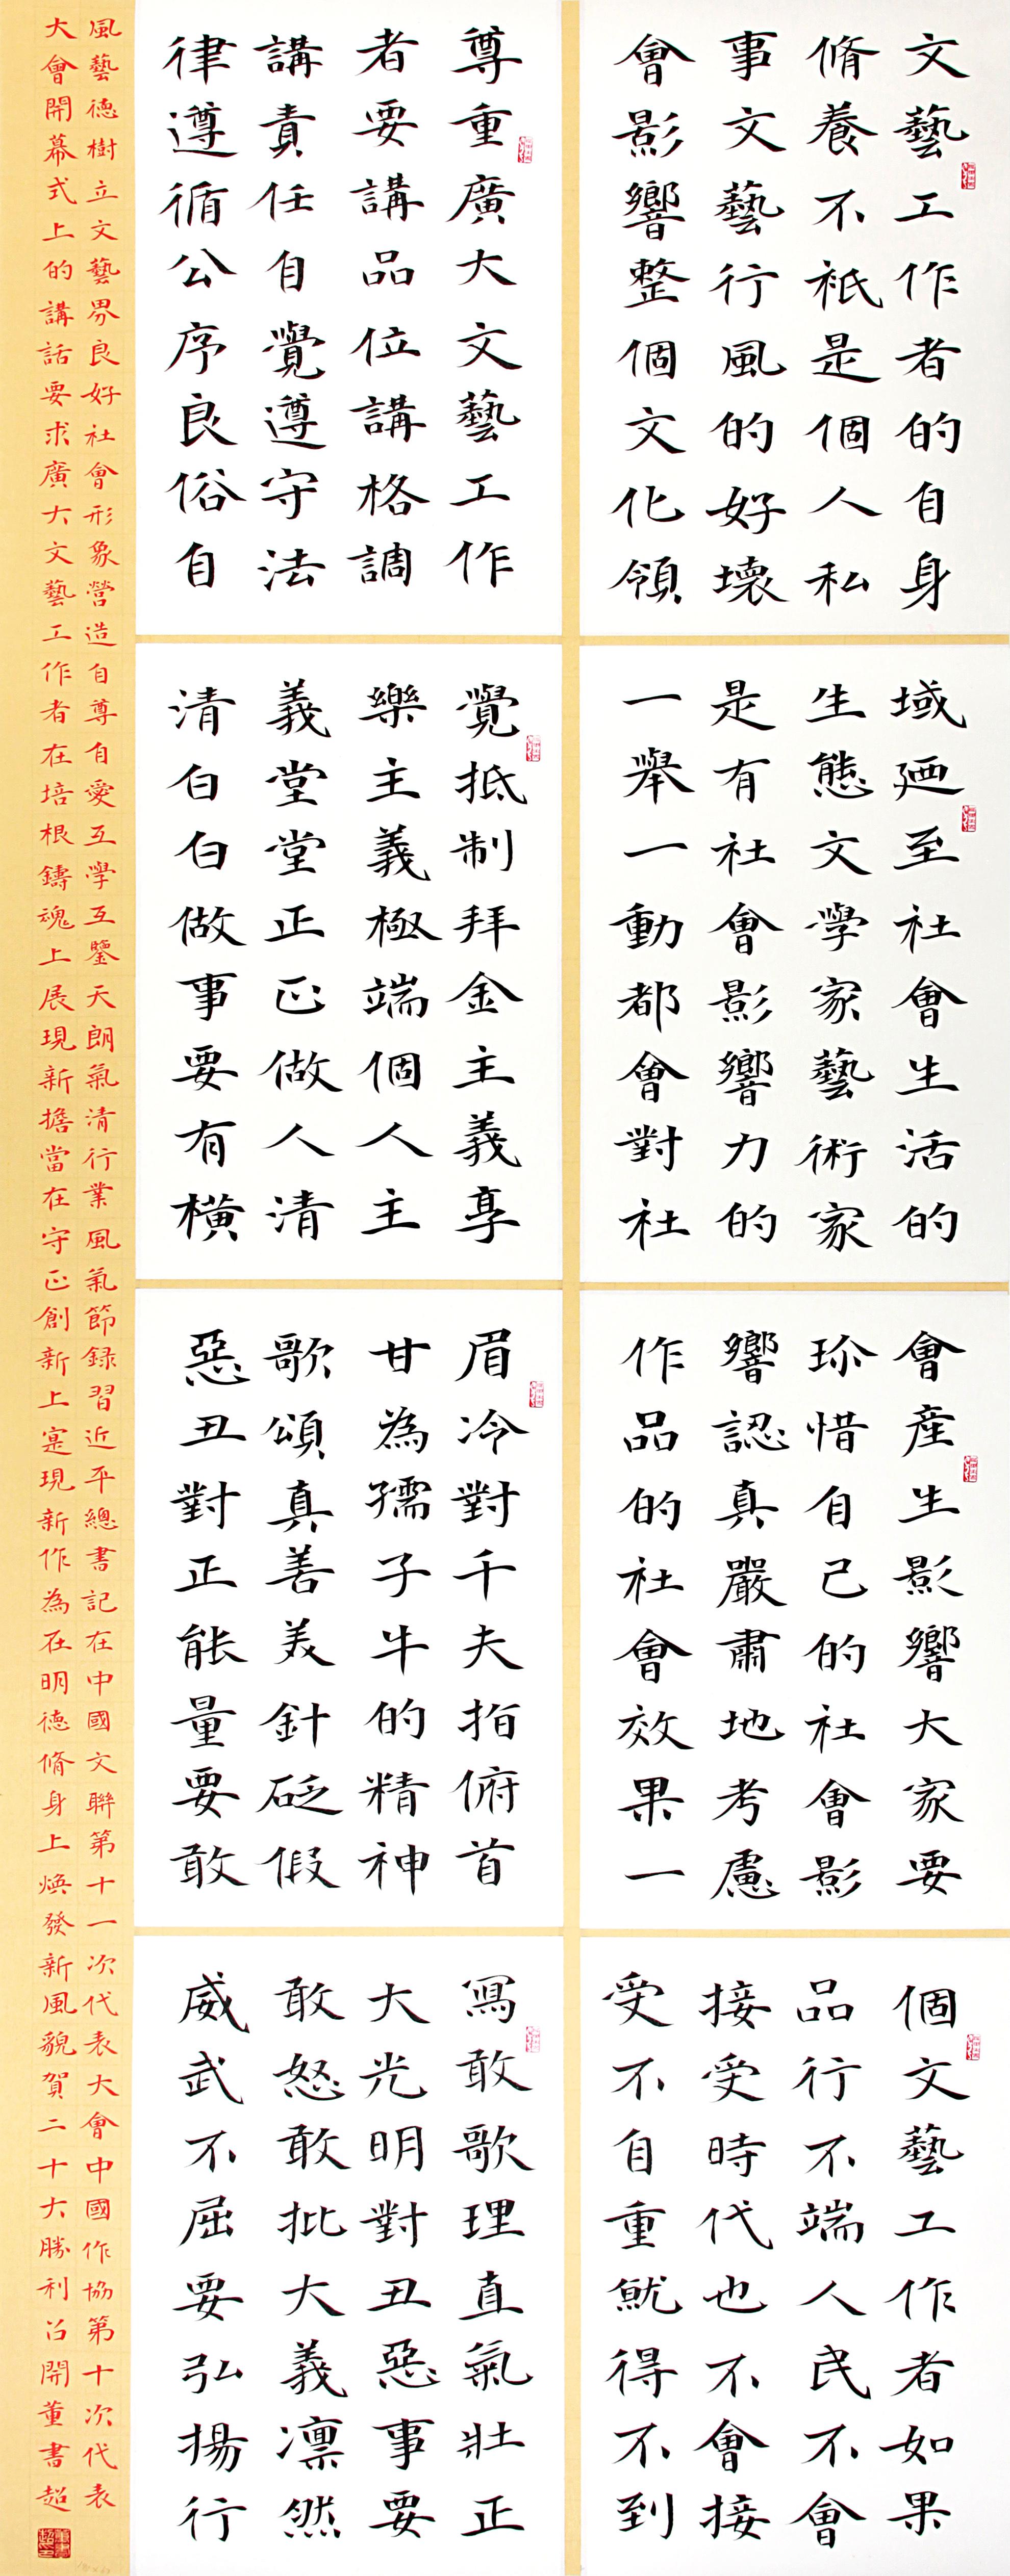 文藝工作者的自身
脩養不祇是個人私
事文藝行風的好壞
會影響整個文化領
域廼至社會生活的
生態文學家藝術家
是有社會影響力的
一舉一動都會對社
會產生影響大家要
珎惜自己的社會影
響認真嚴肅地考慮
作品的社會效果一
個文藝工作者如果
品行不端人民不會
接受時代也不會接
受不自重就得不到
尊重廣大文藝工作
者要講品位講格調
講責任自覺遵守法
律遵循公序良俗自
覺抵制拜金主義享
樂主義極端個人主
義堂堂正正做人清
清白白做事要有橫
眉冷對千夫指俯首
甘為孺子牛的精神
歌頌真善美針砭假
惡丑對正能量要敢
寫敢歌理直氣壯正
大光明對丑惡事要
敢怒敢批大義凛然
威武不屈要弘揚行
風藝德樹立文藝界良好社會形象營造自尊自愛互學互鑒天朗氣清行業風氣節録習近平總書記在中國文聯第十一次代表大會中國作協第十次代表
大會開幕式上的講話要求廣大文藝工作者在培根鑄魂上展現新擔當在守正創新上寔現新作為在明德脩身上煥發新風貌賀二十大勝利召開董書超